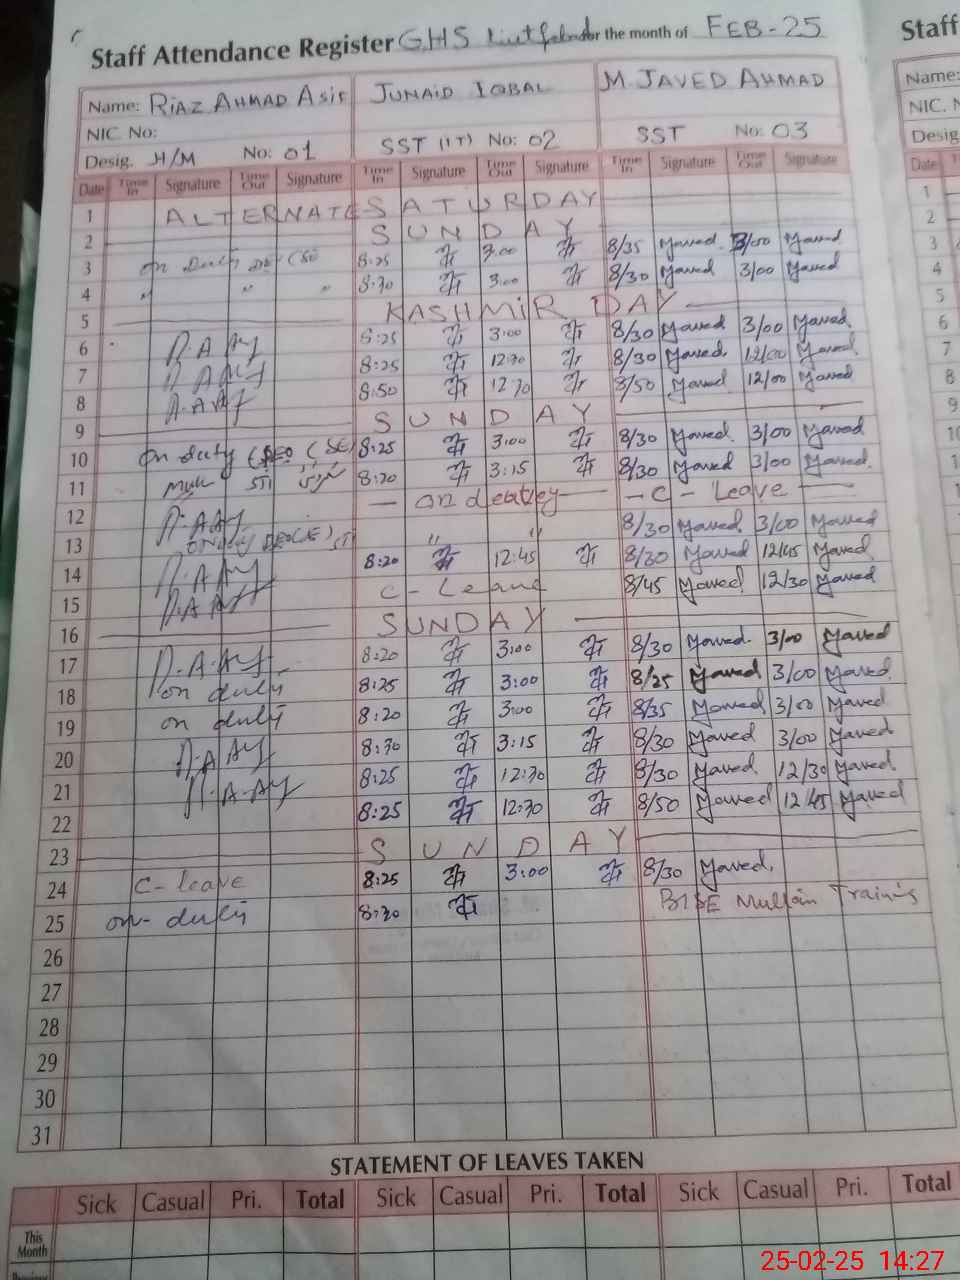 Staff Attendance Register GHS for the month of FEB-25
Staff
Name: RIAZ AHMAD ASIF JUNAID IQBAL M. JAVED AHMAD
Name:
NIC. No:
NIC. N
Desig. H/M No: 01 SST (IT) No: 02 SST No: 03
Desig
Date Time In Signature Time Out Signature Time In Signature Time Out Signature Time In Signature Time Out Signature
1 ALTERNATE SATURDAY
2 SUNDAY
3 on Duty 8:25 3:00 8/35 Javed 3/00 Javed
4 " " " 8:30 3:00 8/30 Javed 3/00 Javed
5 KASHMIR DAY
6 R.A.Asif 8:25 3:00 8/30 Javed 3/00 Javed
7 R.A.Asif 8:25 12:30 8/30 Javed 12/00 Javed
8 R.A.Asif 8:50 12:30 8/50 Javed 12/00 Javed
9 SUNDAY
10 on duty 8:25 3:00 8/30 Javed 3/00 Javed
11 8:20 3:15 8/30 Javed 3/00 Javed
12 R.A.Asif — on deutey — — C - Leave —
13 " " 8/30 Javed 3/00 Javed
14 R.A.Asif 8:20 12:45 8/30 Javed 12/45 Javed
15 R.A.Asif C - Leave 8/45 Javed 12/30 Javed
16 SUNDAY
17 R.A.Asif 8:20 3:00 8/30 Javed 3/00 Javed
18 on duty 8:25 3:00 8/25 Javed 3/00 Javed
19 on duty 8:20 3:00 8/35 Javed 3/00 Javed
20 R.A.Asif 8:30 3:15 8/30 Javed 3/00 Javed
21 R.A.Asif 8:25 12:30 8/30 Javed 12/30 Javed
22 8:25 12:30 8/50 Javed 12/45 Javed
23 SUNDAY
24 C-leave 8:25 3:00 8/30 Javed
25 on-duty 8:30 BISE Multan Training
26
27
28
29
30
31
STATEMENT OF LEAVES TAKEN
Sick Casual Pri. Total Sick Casual Pri. Total Sick Casual Pri. Total
This Month
25-02-25 14:27